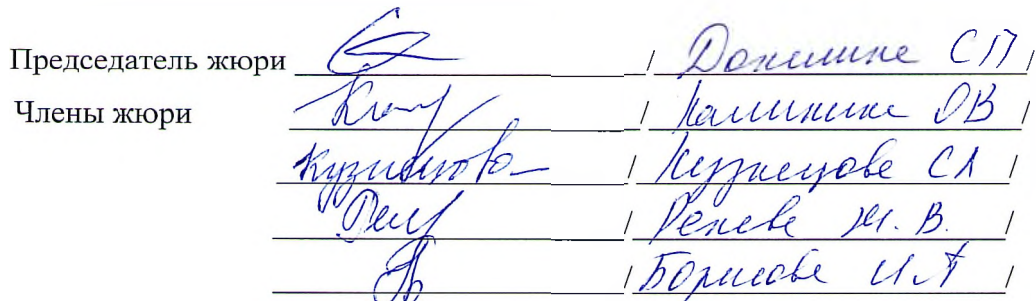 Председатель жюри / Данилина СП /
Члены жюри / Калинина ОВ /
Кузнецова / Кузнецова СА /
/ Ж. В. /
/ Борисова И А /